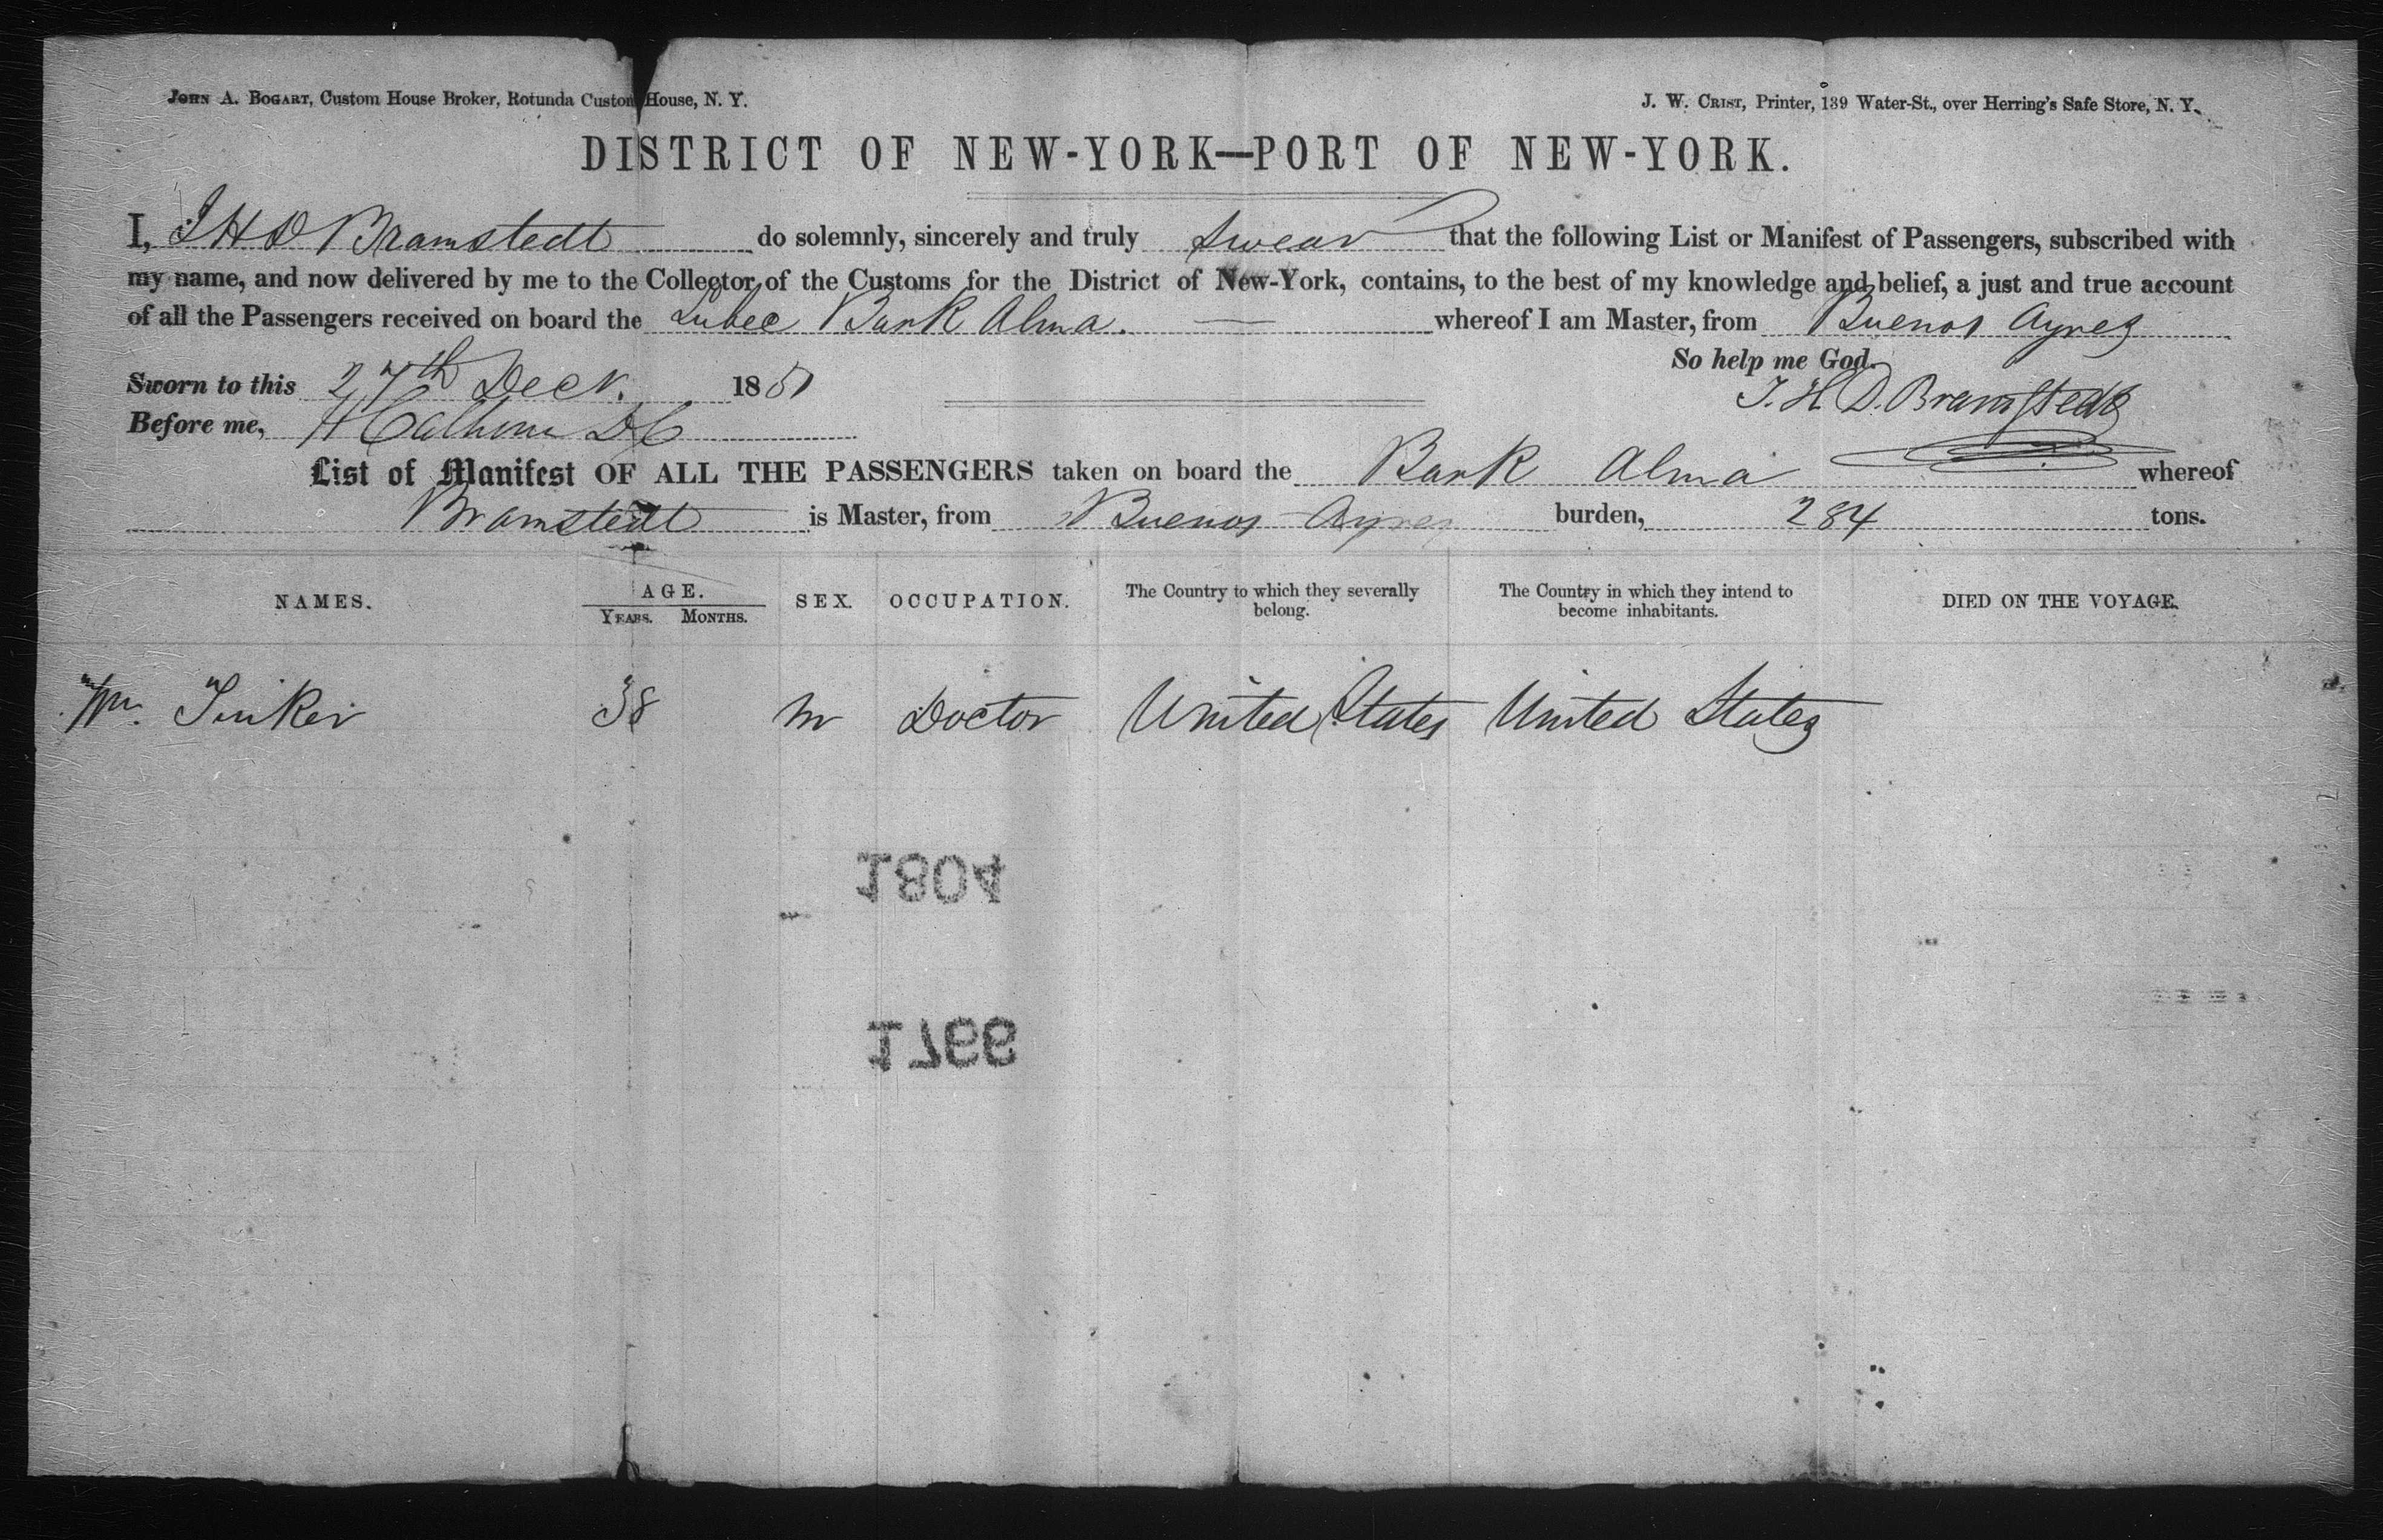 JOHN A. BOGART, Custom House Broker, Rotunda Custom House, N. Y.
J. W. CRIST, Printer, 139 Water-St., over Herring's Safe Store, N. Y.
DISTRICT OF NEW-YORK—PORT OF NEW-YORK.
I, J H D Bramstedt do solemnly, sincerely and truly swear that the following List or Manifest of Passengers, subscribed with
my name, and now delivered by me to the Collector of the Customs for the District of New-York, contains, to the best of my knowledge and belief, a just and true account
of all the Passengers received on board the Lubec Bark Alma. whereof I am Master, from Buenos Ayres
So help me God.
Sworn to this 27th Decr. 18
J. H. D. Bramstedt
Before me, H Calhoun D C
List of Manifest OF ALL THE PASSENGERS taken on board the Bark Alma whereof
Bramstedt is Master, from Buenos Ayres burden, 284 tons.
NAMES. AGE. SEX. OCCUPATION. The Country to which they severally belong. The Country in which they intend to become inhabitants. DIED ON THE VOYAGE.
YEARS. MONTHS.
Wm. Tinker 38 m Doctor United States United States
1804
1766